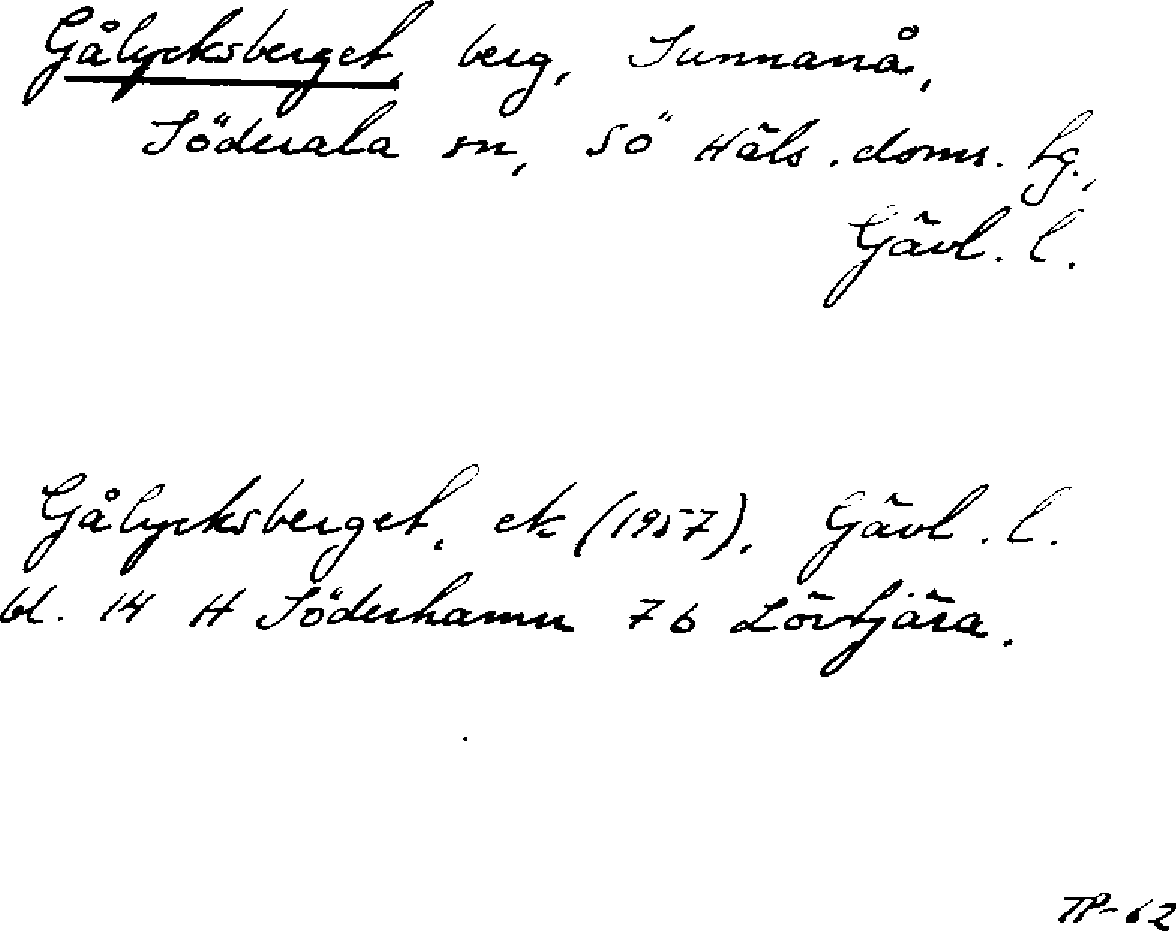 Gålycksberget, berg, Sunnanå,
Söderala sn, Sö Häls. doms. hg.,
Gävl. l.
Gålycksberget, ek (1957), Gävl. l.
bl. 14 H Söderhamn 7 b Lövtjära.
TP-62